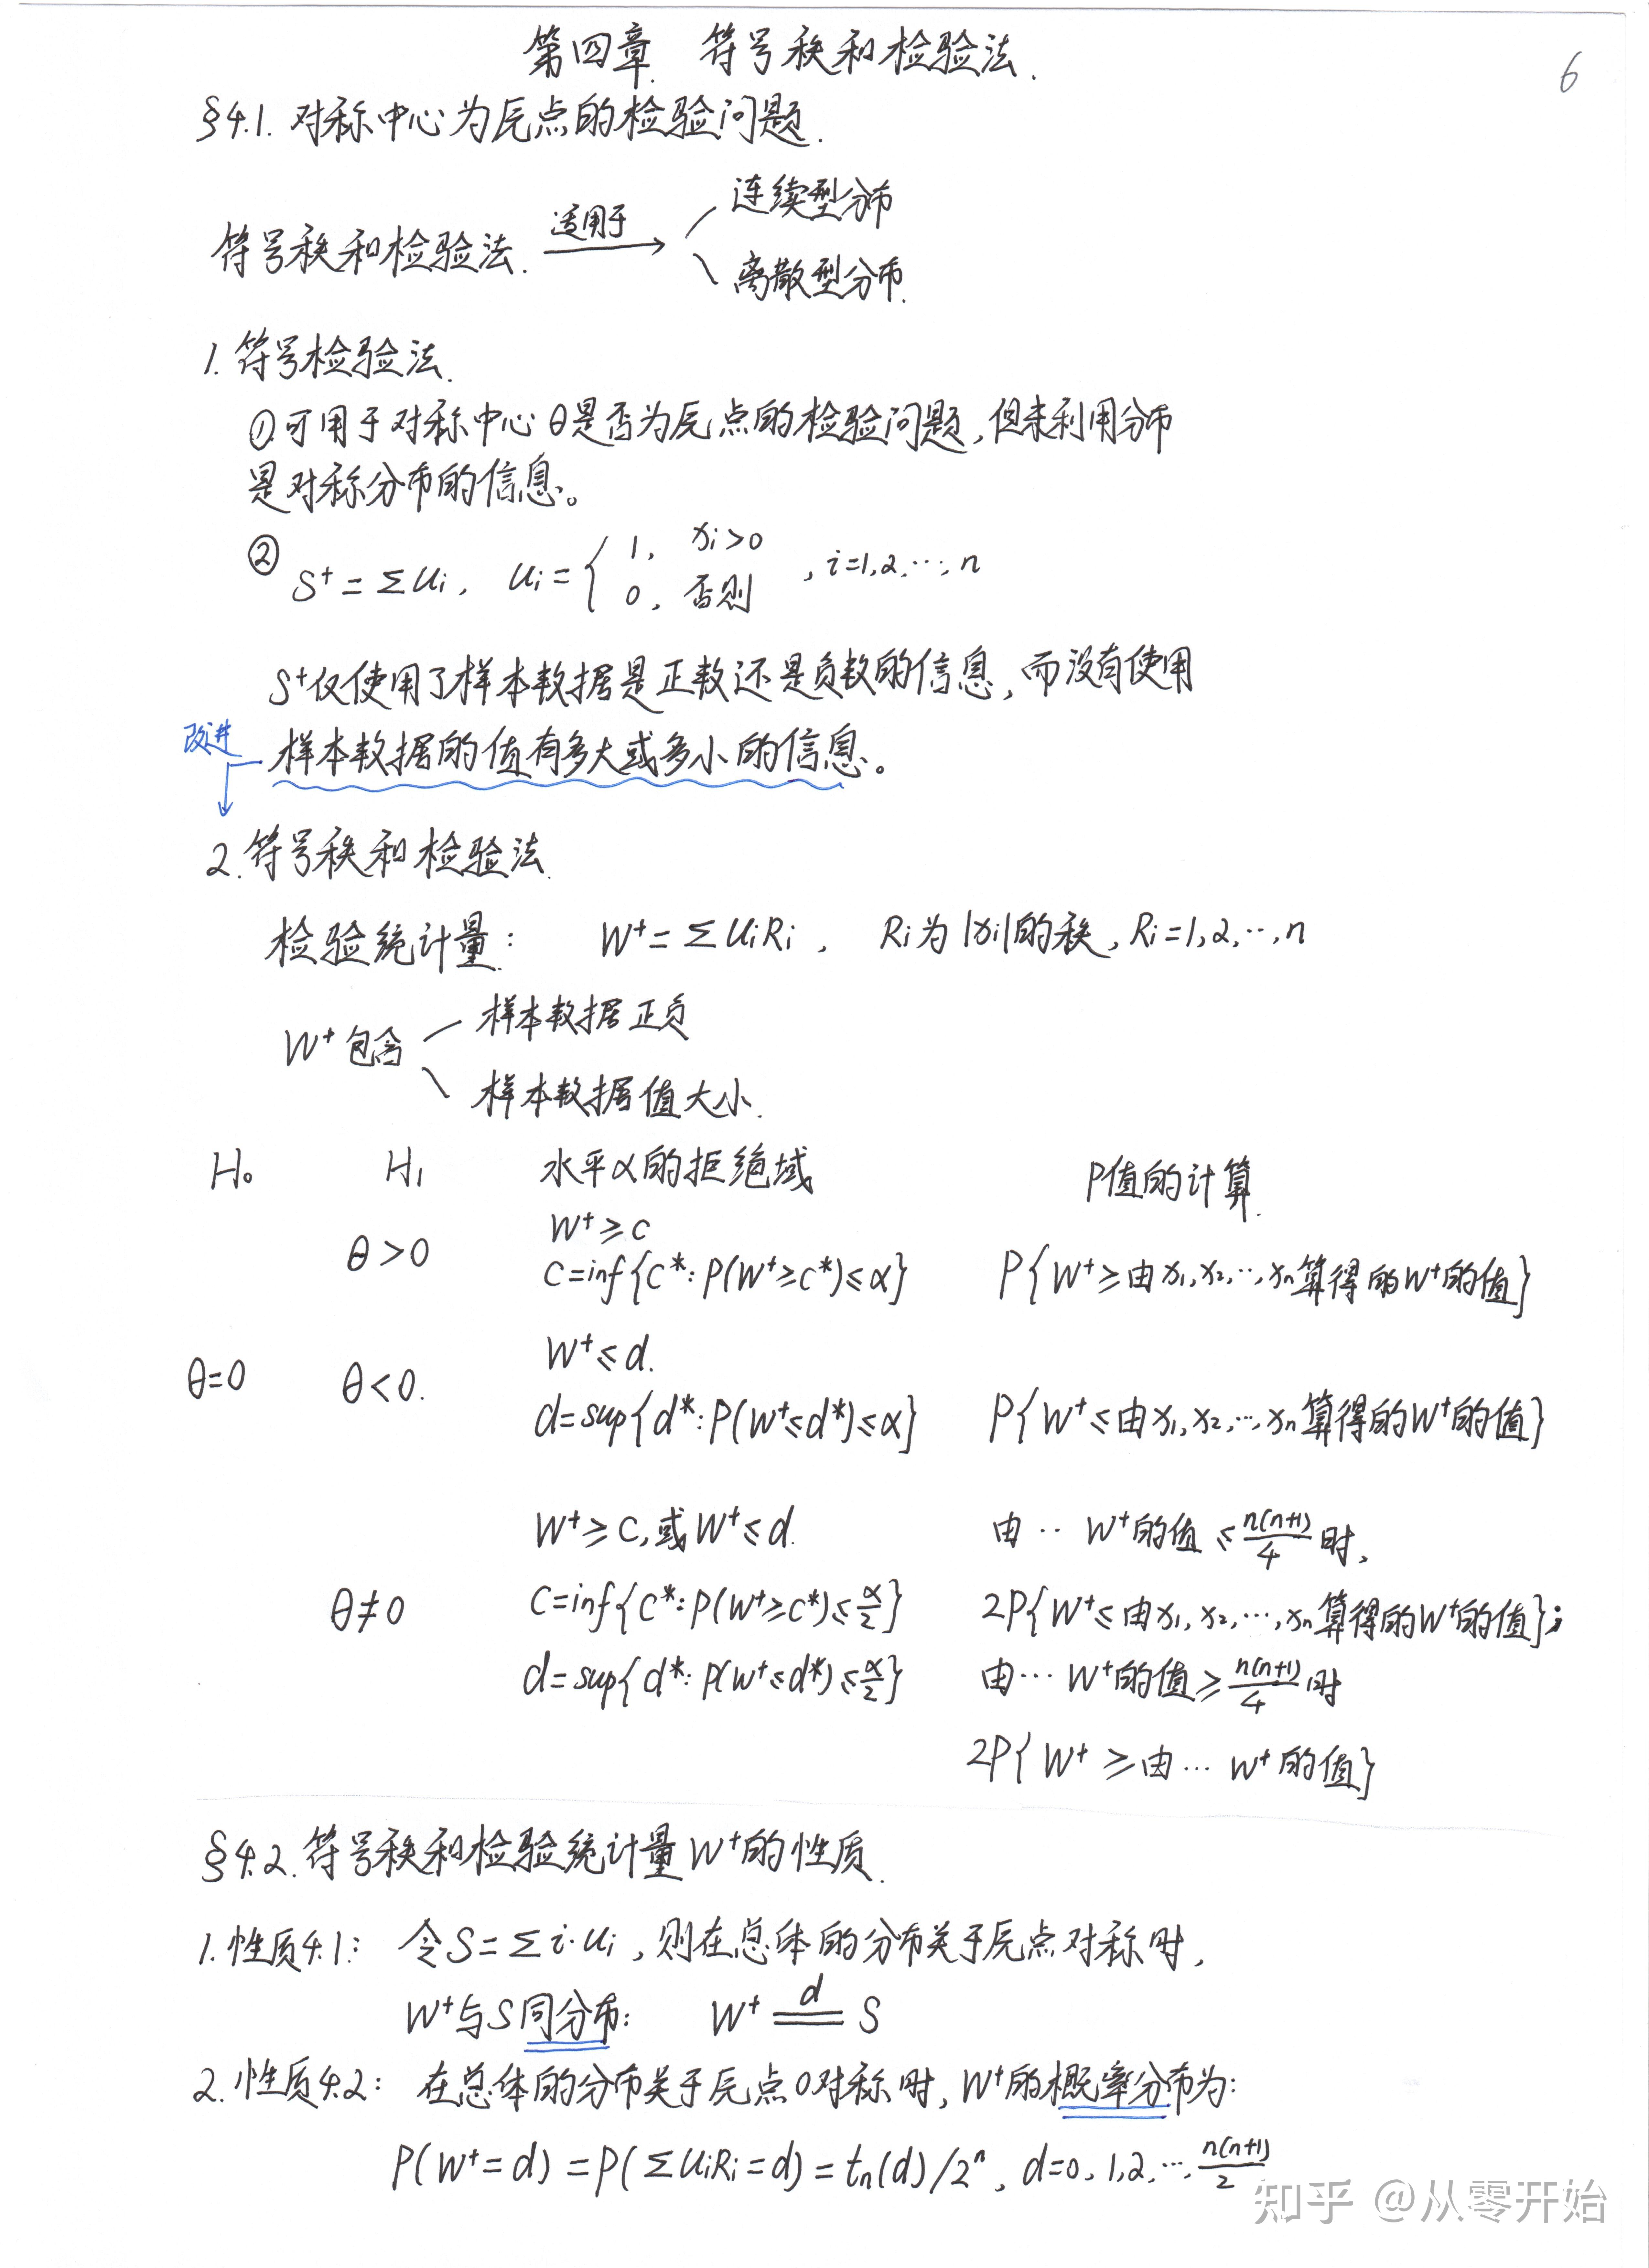 第四章 符号秩和检验法.
6
§4.1. 对称中心为原点的检验问题.
符号秩和检验法. 适用于 连续型分布
离散型分布.
1. 符号检验法.
①可用于对称中心θ是否为原点的检验问题,但未利用分布
是对称分布的信息。
② S⁺=Σui, ui={ 1, xi>0 ; 0, 否则 , i=1,2,…,n
S⁺仅使用了样本数据是正数还是负数的信息,而没有使用
改进
样本数据的值有多大或多小的信息。
2. 符号秩和检验法.
检验统计量: W⁺=ΣuiRi, Ri为|xi|的秩, Ri=1,2,…,n
W⁺包含 样本数据正负
样本数据值大小.
H₀ H₁ 水平α的拒绝域 P值的计算.
W⁺≥c
θ>0 c=inf{c*: P(W⁺≥c*)≤α} P{W⁺≥由x₁,x₂,…,xn算得的W⁺的值}
W⁺≤d.
θ=0 θ<0. d=sup{d*: P(W⁺≤d*)≤α} P{W⁺≤由x₁,x₂,…,xn算得的W⁺的值}
W⁺≥c,或W⁺≤d. 由…W⁺的值≤n(n+1)/4时,
θ≠0 c=inf{c*: P(W⁺≥c*)≤α/2} 2P{W⁺≤由x₁,x₂,…,xn算得的W⁺的值};
d=sup{d*: P(W⁺≤d*)≤α/2} 由…W⁺的值≥n(n+1)/4时
2P{W⁺≥由…W⁺的值}
§4.2. 符号秩和检验统计量W⁺的性质.
1. 性质4.1: 令S=Σi·ui, 则在总体的分布关于原点对称时,
W⁺与S同分布: W⁺ d= S
2. 性质4.2: 在总体的分布关于原点0对称时, W⁺的概率分布为:
P(W⁺=d)=P(ΣuiRi=d)=tn(d)/2ⁿ, d=0,1,2,…,n(n+1)/2
知乎 @从零开始